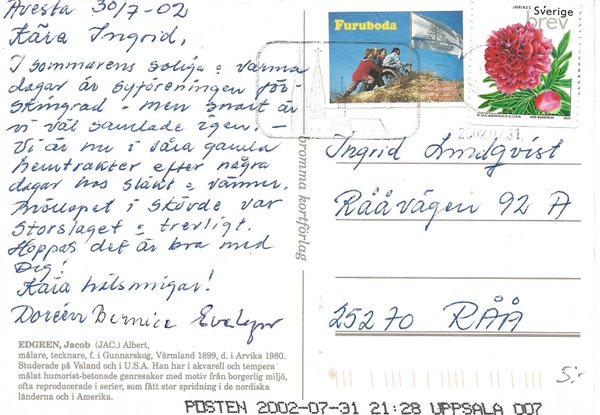 Avesta 30/7-02
Kära Ingrid,
I sommarens soliga o varma
dagar är syföreningen för-
skingrad - men snart är
vi väl samlade igen! -
Vi är nu i våra gamla
hemtrakter efter några
dagar hos släkt o vänner.
Bröllopet i Skövde var
storslaget o trevligt.
Hoppas det är bra med
Dig!
Kära hälsningar!
Doreen Bernice Evelyn
EDGREN, Jacob (JAC.) Albert,
målare, tecknare, f. i Gunnarskog, Värmland 1899, d. i Arvika 1980.
Studerade på Valand och i U.S.A. Han har i akvarell och tempera
målat humorist-betonade genresaker med motiv från borgerlig miljö,
ofta reproducerade i serier, som fått stor spridning i de nordiska
länderna och i Amerika.
bromma kortförlag
Furuboda
INRIKES
Sverige
brev
2002.07.31
Ingrid Lundqvist
Rååvägen 92 A
25270 RÅÅ
5:-
POSTEN 2002-07-31 21:28 UPPSALA 007